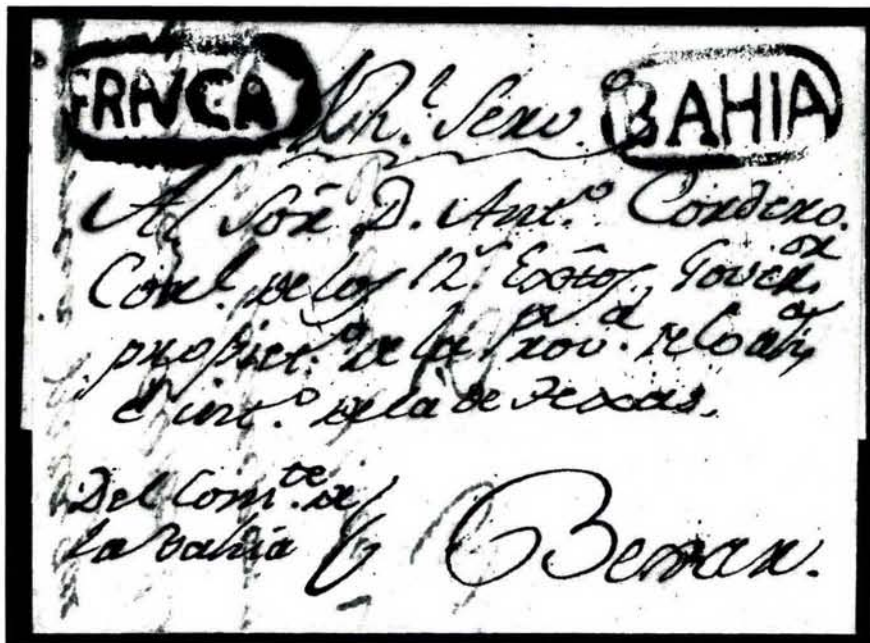 FRANCA Rl. Servo. BAHIA
Al Sor. D. Anto. Cordero.
Corl. de los Rs. Extos, Goveror.
propieto. de la Prova. de Coaha.
é into. de la de Texas.
Del Comte. de
la Bahia
Bexar.